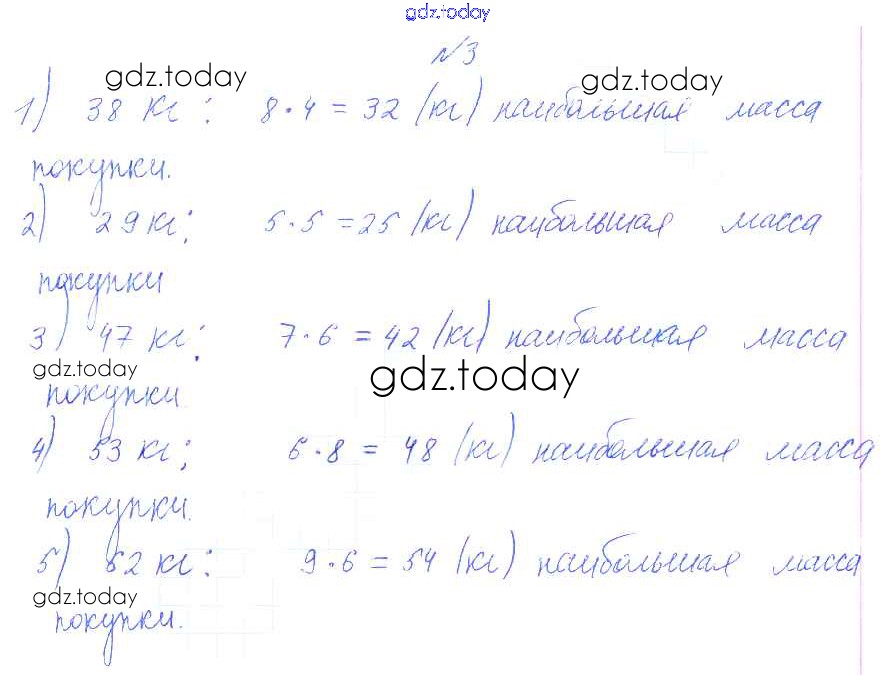 gdz.today
№3
gdz.today gdz.today
1) 38 кг: 8·4 = 32 (кг) наибольшая масса
покупки.
2) 29 кг: 5·5 = 25 (кг) наибольшая масса
покупки
3) 47 кг: 7·6 = 42 (кг) наибольшая масса
gdz.today gdz.today
покупки
4) 53 кг: 6·8 = 48 (кг) наибольшая масса
покупки.
5) 62 кг: 9·6 = 54 (кг) наибольшая масса
gdz.today
покупки.